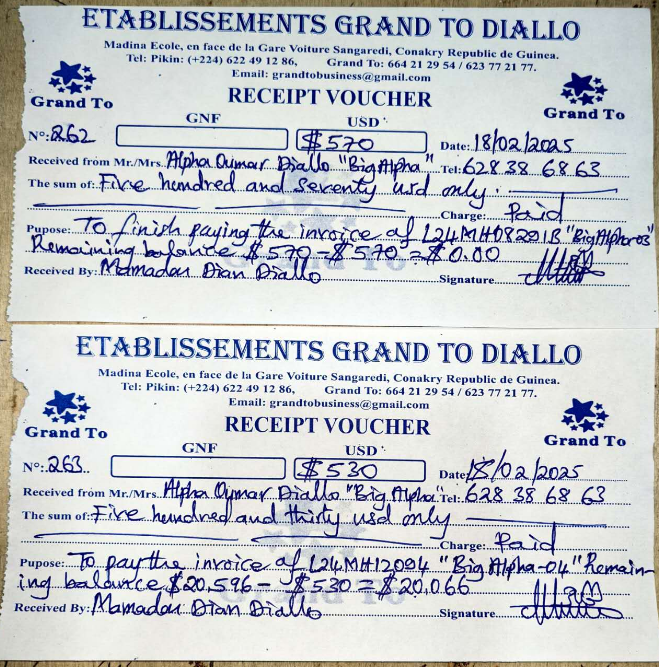 ETABLISSEMENTS GRAND TO DIALLO
Madina Ecole, en face de la Gare Voiture Sangaredi, Conakry Republic de Guinea.
Tel: Pikin: (+224) 622 49 12 86, Grand To: 664 21 29 54 / 623 77 21 77.
Email: grandtobusiness@gmail.com
Grand To
RECEIPT VOUCHER
Grand To
GNF USD
N°: 262 $570 Date: 18/02/2025
Received from Mr./Mrs. Alpha Oumar Diallo "Big Alpha" Tel: 628 38 68 63
The sum of: Five hundred and Seventy usd only.
Charge: Paid
Pupose: To finish paying the invoice of L24MH08291B "Big Alpha-03"
Remaining balance $570 - $570 = $0.00
Received By: Mamadou Dian Diallo Signature
Grand To
ETABLISSEMENTS GRAND TO DIALLO
Madina Ecole, en face de la Gare Voiture Sangaredi, Conakry Republic de Guinea.
Tel: Pikin: (+224) 622 49 12 86, Grand To: 664 21 29 54 / 623 77 21 77.
Email: grandtobusiness@gmail.com
Grand To
RECEIPT VOUCHER
Grand To
GNF USD
N°: 263 $530 Date 18/02/2025
Received from Mr./Mrs. Alpha Oumar Diallo "Big Alpha" Tel: 628 38 68 63
The sum of: Five hundred and thirty usd only
Charge: Paid
Pupose: To pay the invoice of L24MH12094 "Big Alpha-04" Remain-
ing balance $20,596 - $530 = $20,066
Received By: Mamadou Dian Diallo Signature
Grand To